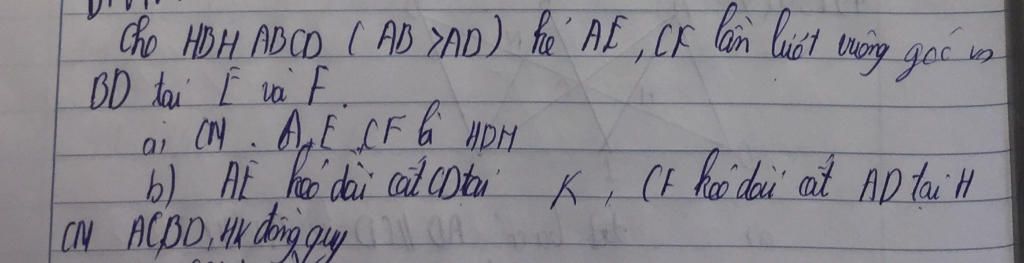 Cho HBH ABCD ( AB > AD ) kẻ AE , CF lần lượt vuông góc vs
BD tại E và F.
a, CM . A,E,CF là HBH
b) AE kéo dài cắt CD tại K , CF kéo dài cắt AD tại H
CM AC,BD,HK đồng quy